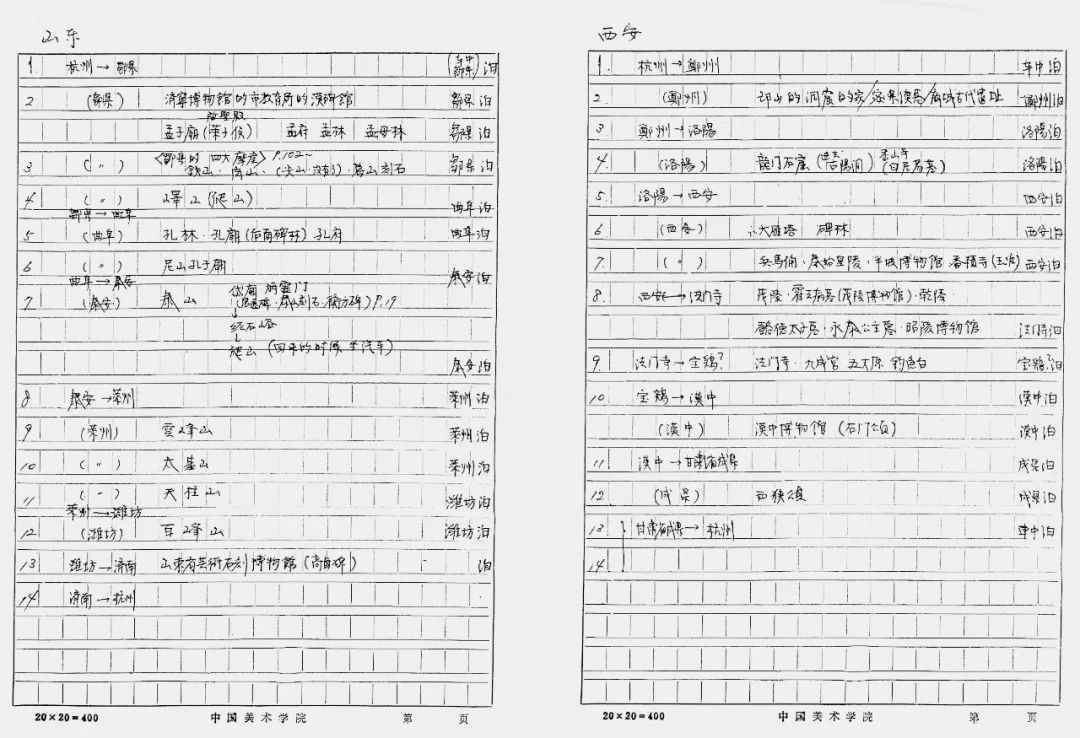 山东
1 杭州→鄒県 (车中 鄒県) 泊
2 (鄒県) 済寧博物館的市教育局的漢碑館 鄒県 泊
孟子廟(莱子侯) 孟府 孟林 孟母林 鄒県 泊
3 (〃) <鄒県的四大摩崖> P.102~
鉄山・岡山・(尖山・没有)・葛山刻石 鄒県 泊
4 (〃) 嶧山(爬山) 曲阜 泊
鄒県→曲阜
5 (曲阜) 孔林・孔廟(后面碑林) 孔府 曲阜 泊
6 (〃) 尼山孔子廟 泰安 泊
曲阜→泰安
7 (泰安) 泰山 岱廟 P.19
↓
经石峪
↓
爬山 (回来的时候坐汽车)
泰安 泊
8 泰安→莱州 莱州 泊
9 (莱州) 雲峰山 莱州 泊
10 (〃) 太基山 莱州 泊
11 (〃) 天柱山 潍坊 泊
莱州→潍坊
12 (潍坊) 百峰山 潍坊 泊
13 潍坊→済南 山東省芸術石刻博物館(高貞碑) 泊
14 済南→杭州
20×20=400 中国美术学院 第 页
西安
1. 杭州→鄭州 车中 泊
2. (鄭州) 古代遺址 鄭州 泊
3 鄭州→洛陽 洛陽泊
4. (洛陽) 龍门石窟 (古陽洞) 香山寺 (白居易墓) 洛陽泊
5 洛陽→西安 西安泊
6 (西安) 大雁塔 碑林 西安泊
7. (〃) 兵馬俑・秦始皇陵・半坡博物館・香積寺 西安泊
8. 西安→法门寺 茂陵・霍去病墓(茂陵博物館)・乾陵・
懿德太子墓・永泰公主墓・昭陵博物館 法门寺泊
9. 法门寺→宝鶏? 法门寺・九成宮 五丈原 钓魚台 宝鶏?泊
10 宝鶏→漢中 漢中泊
(漢中) 漢中博物館 (石门頌) 漢中泊
11 漢中→甘肃省成県 成県泊
12 (成県) 西狭頌 成県泊
13 甘肃省成県→杭州 車中泊
14
20×20=400 中国美术学院 第 页